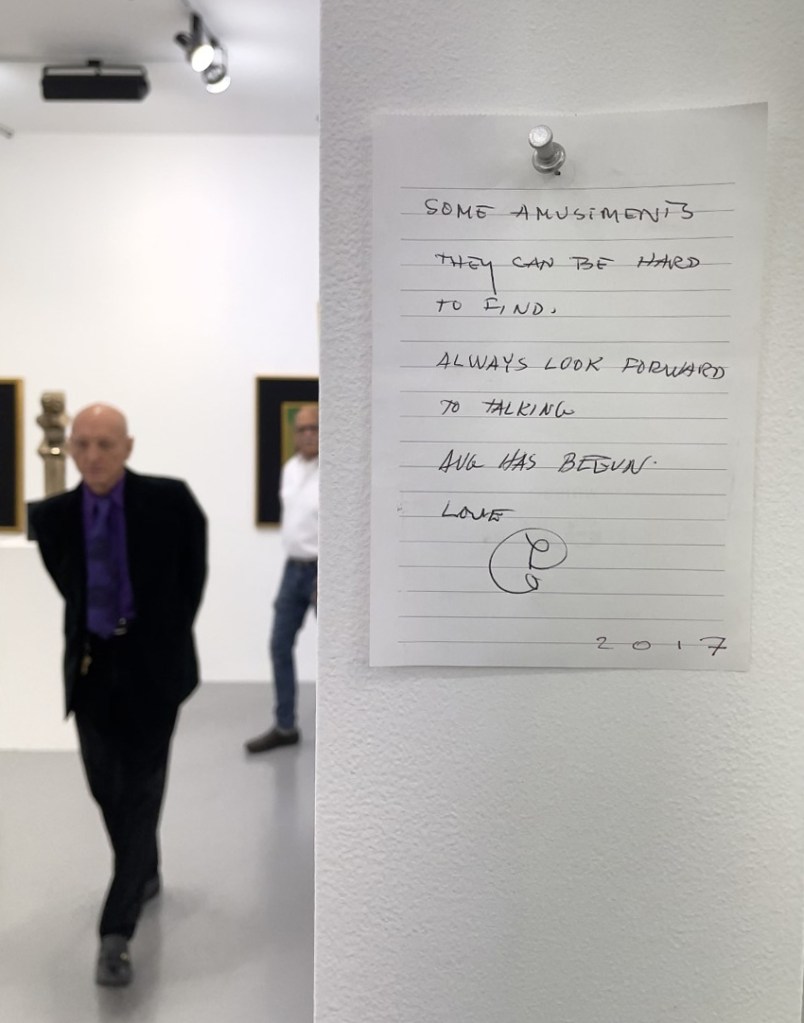 SOME AMUSEMENTS
THEY CAN BE HARD
TO FIND.
ALWAYS LOOK FORWARD
TO TALKING
AUG HAS BEGUN.
LOVE
2017